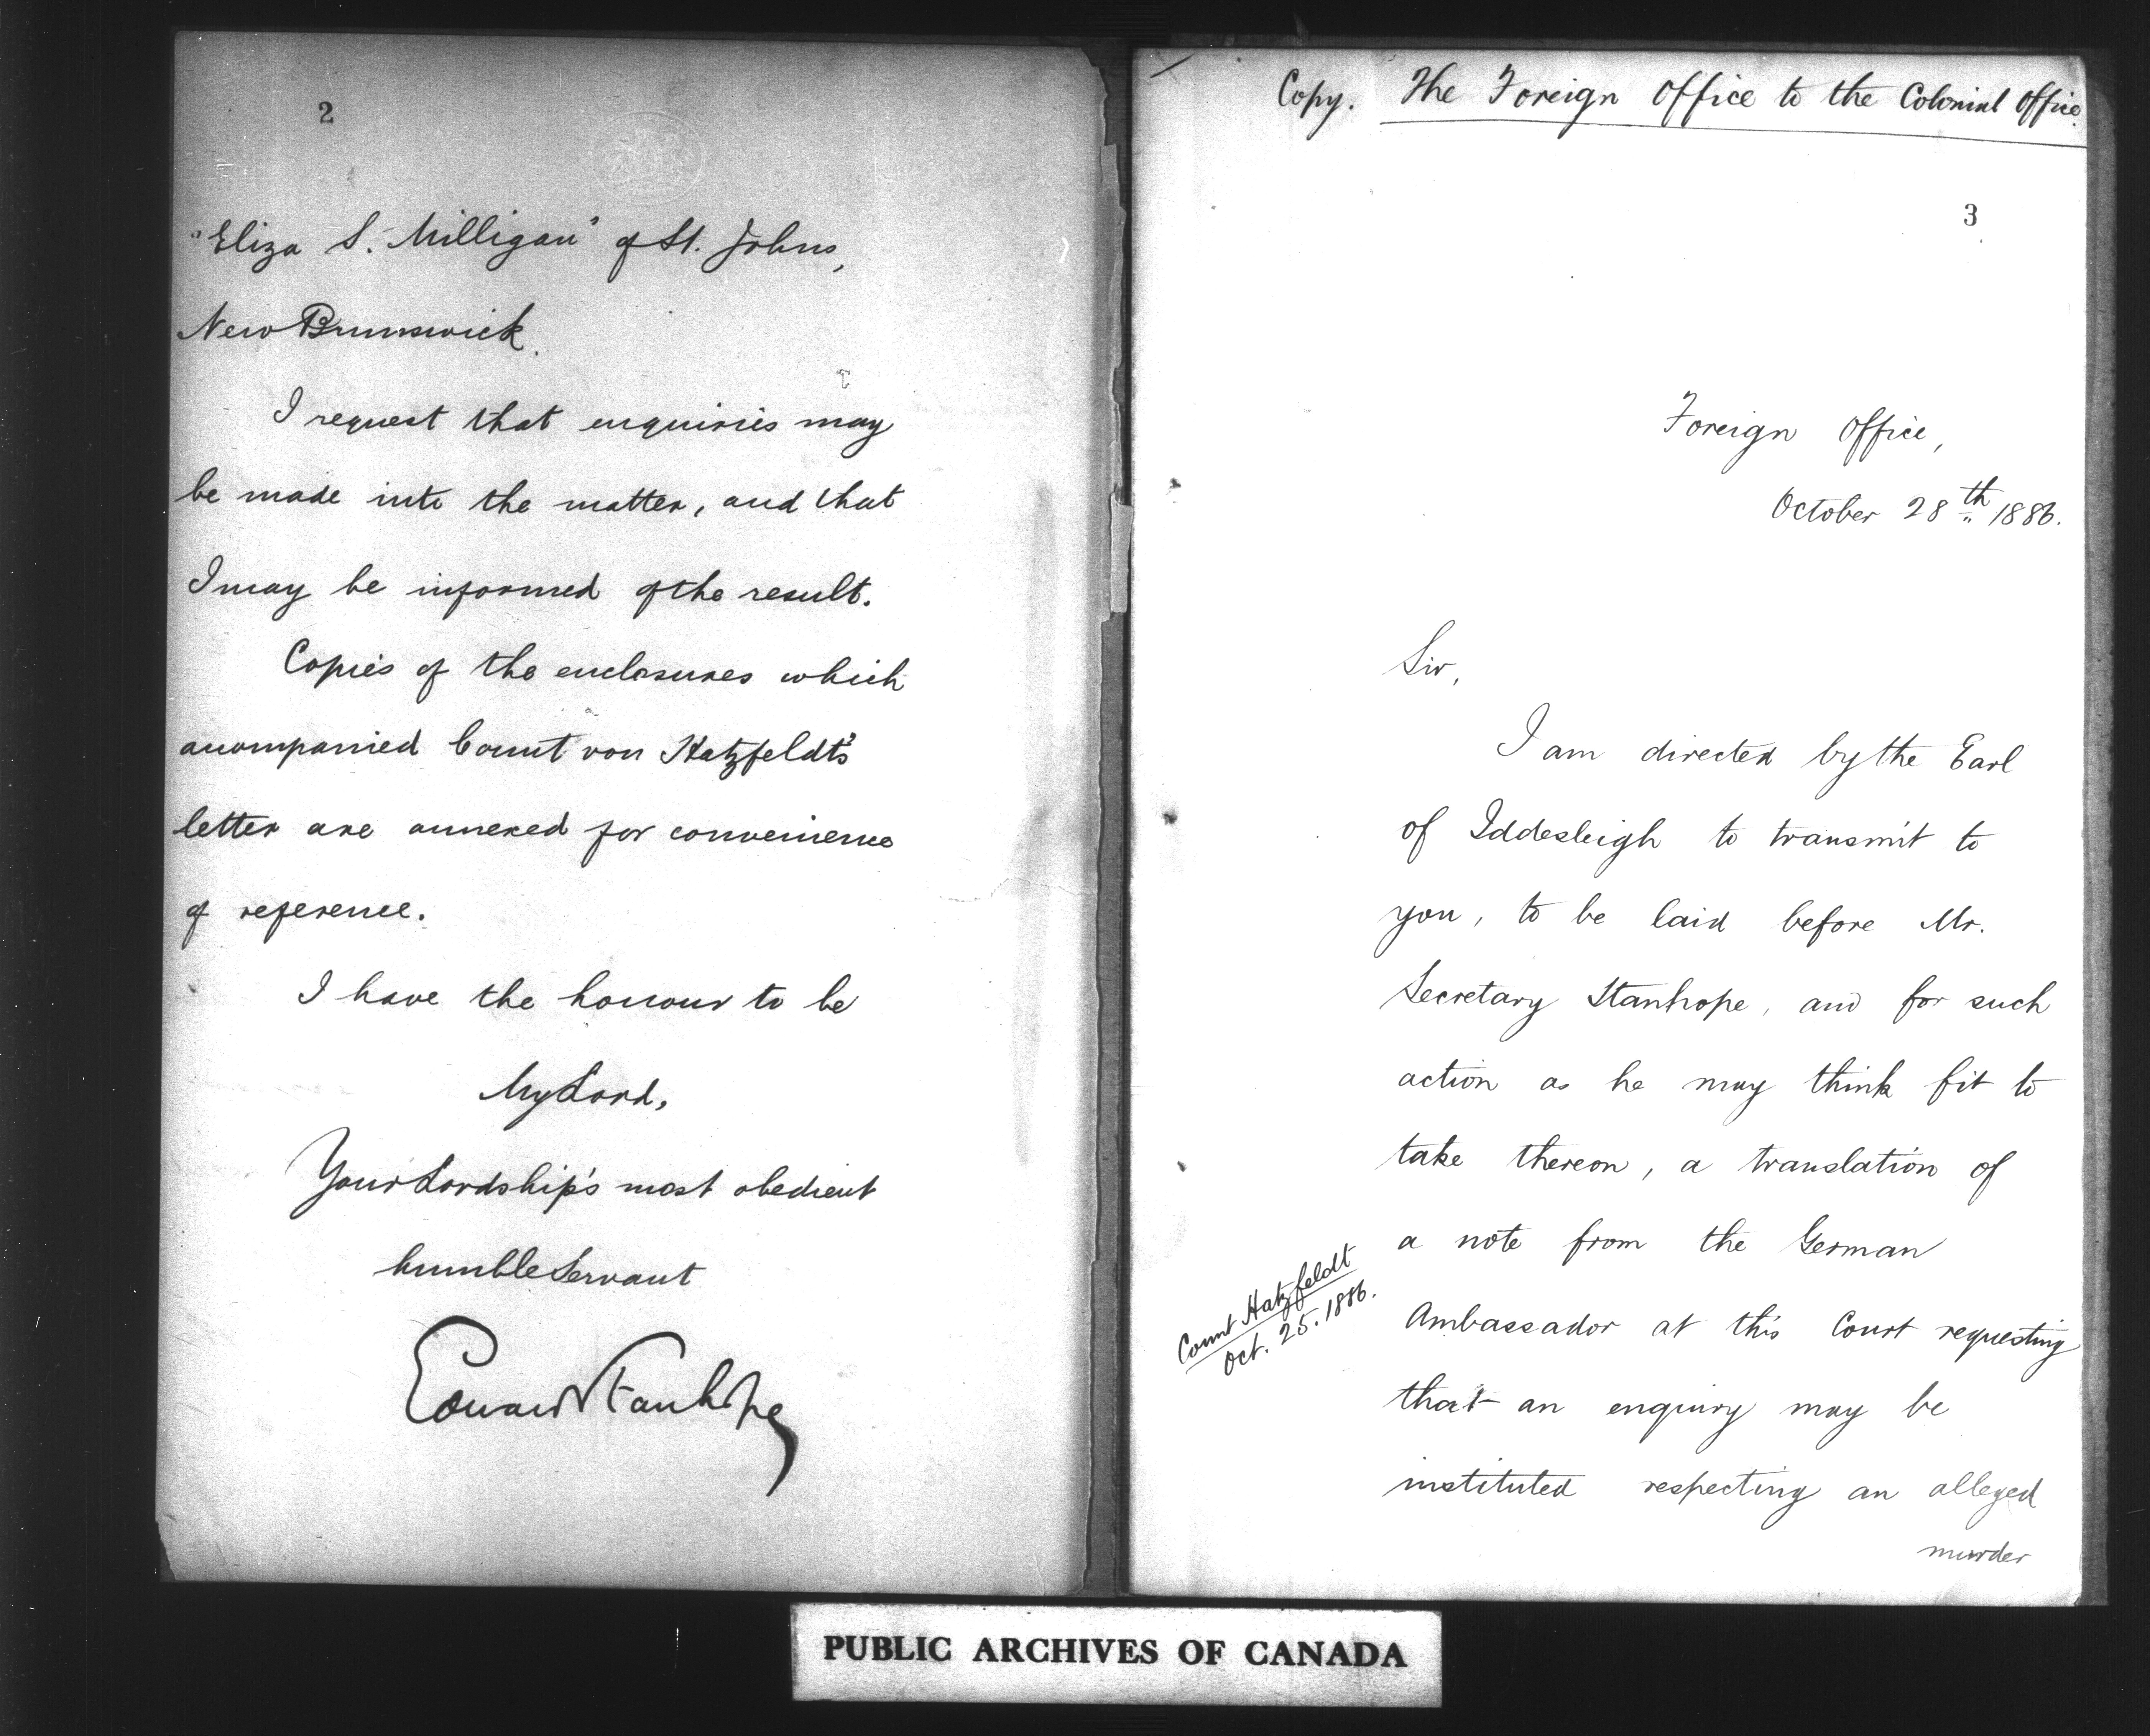 2
"Eliza S. Milligan" of St. Johns,
New Brunswick.
I request that enquiries may
be made into the matter, and that
I may be informed of the result.
Copies of the enclosures which
accompanied Count von Hatzfeldt's
letter are annexed for convenience
of reference.
I have the honour to be
My Lord,
Your Lordship's most obedient
humble Servant
Edward Stanhope
Copy. The Foreign Office to the Colonial Office.
3
Foreign Office,
October 28th 1886.
Sir,
I am directed by the Earl
of Iddesleigh to transmit to
you, to be laid before Mr.
Secretary Stanhope, and for such
action as he may think fit to
take thereon, a translation of
a note from the German
Count Hatzfeldt
Oct. 25. 1886.
Ambassador at this Court requesting
that an enquiry may be
instituted respecting an alleged
murder
PUBLIC ARCHIVES OF CANADA